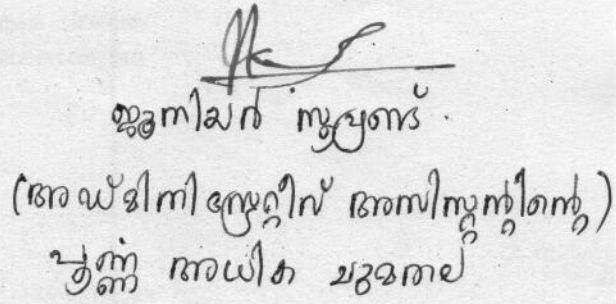 ജൂനിയർ സൂപ്രണ്ട്.
(അഡ്മിനിസ്ട്രേറ്റീവ് അസിസ്റ്റന്റിന്റെ)
പൂർണ്ണ അധിക ചുമതല